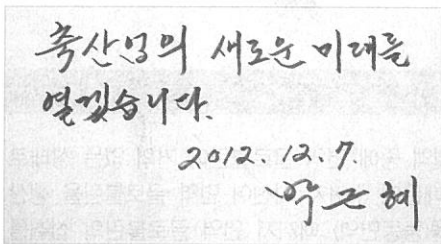 축산업의 새로운 미래를
열겠습니다.
2012. 12. 7.
박근혜